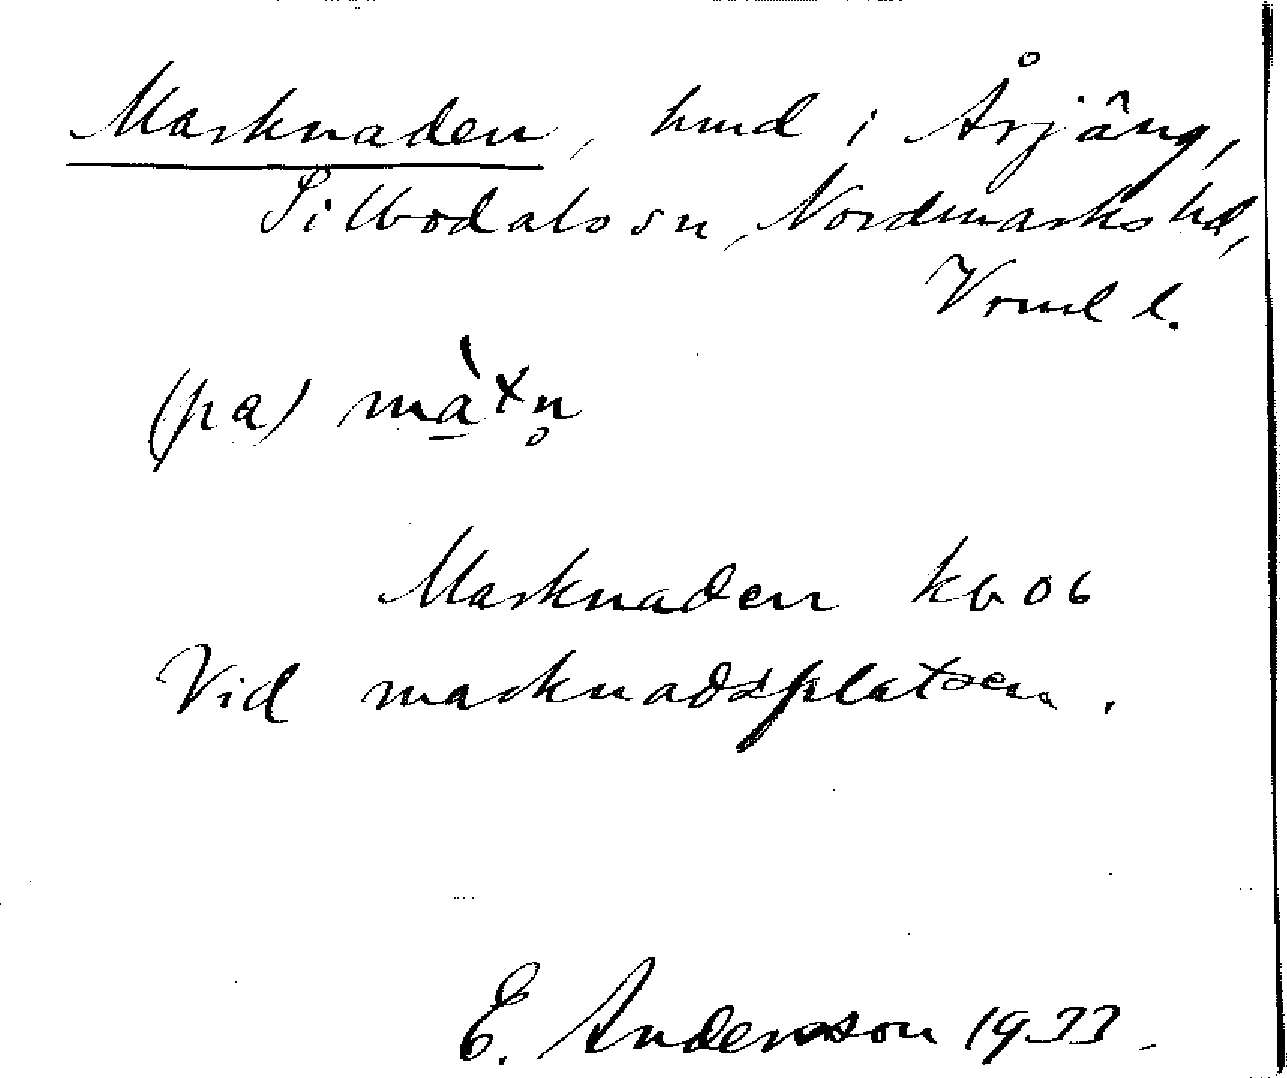 Marknaden, hmd i Årjäng,
Silbodals sn, Nordmarks hd,
Vrml l.
(pa) màxn̥
Marknaden kb 06
Vid marknadsplatsen.
E. Andersson 1933.